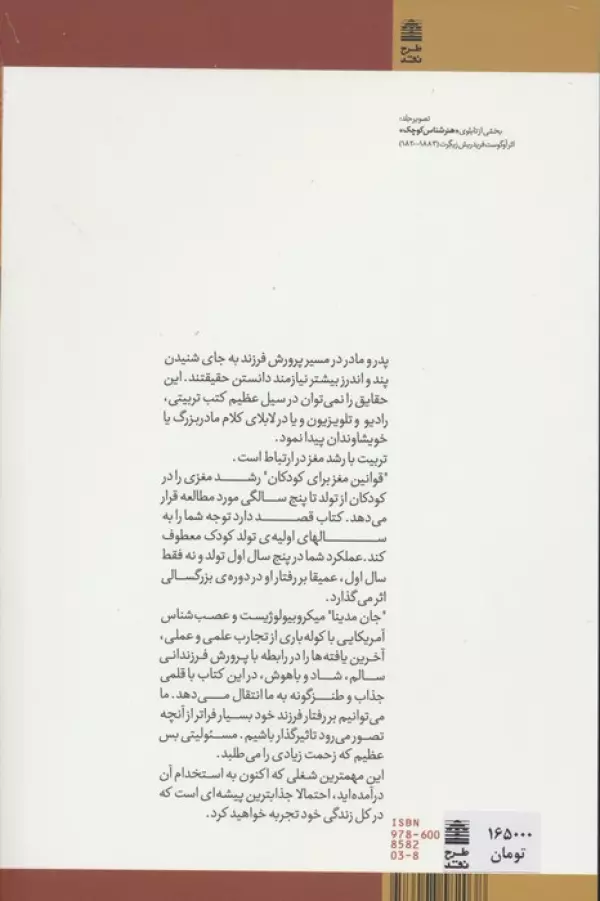 طرح
نقد
تصویر جلد:
بخشی از تابلوی «هنرشناس کوچک»
اثر آوگوست فریدریش زیگرت (۱۸۸۳-۱۸۲۰)
پدر و مادر در مسیر پرورش فرزند به جای شنیدن
پند و اندرز بیشتر نیازمند دانستن حقیقتند. این
حقایق را نمی‌توان در سیل عظیم کتب تربیتی،
رادیو و تلویزیون و یا در لابلای کلام مادربزرگ یا
خویشاوندان پیدا نمود.
تربیت با رشد مغز در ارتباط است.
"قوانین مغز برای کودکان" رشد مغزی را در
کودکان از تولد تا پنج سالگی مورد مطالعه قرار
می‌دهد. کتاب قصد دارد توجه شما را به
سالهای اولیه‌ی تولد کودک معطوف
کند. عملکرد شما در پنج سال اول تولد و نه فقط
سال اول، عمیقا بر رفتار او در دوره‌ی بزرگسالی
اثر می‌گذارد.
"جان مدینا" میکروبیولوژیست و عصب‌شناس
آمریکایی با کوله‌باری از تجارب علمی و عملی،
آخرین یافته‌ها را در رابطه با پرورش فرزندانی
سالم، شاد و باهوش، در این کتاب با قلمی
جذاب و طنزگونه به ما انتقال می‌دهد. ما
می‌توانیم بر رفتار فرزند خود بسیار فراتر از آنچه
تصور می‌رود تاثیرگذار باشیم. مسئولیتی بس
عظیم که زحمت زیادی را می‌طلبد.
این مهمترین شغلی که اکنون به استخدام آن
درآمده‌اید، احتمالا جذابترین پیشه‌ای است که
در کل زندگی خود تجربه خواهید کرد.
ISBN
978-600
8582
03-8
طرح
نقد
۱۶۵۰۰۰
تومان